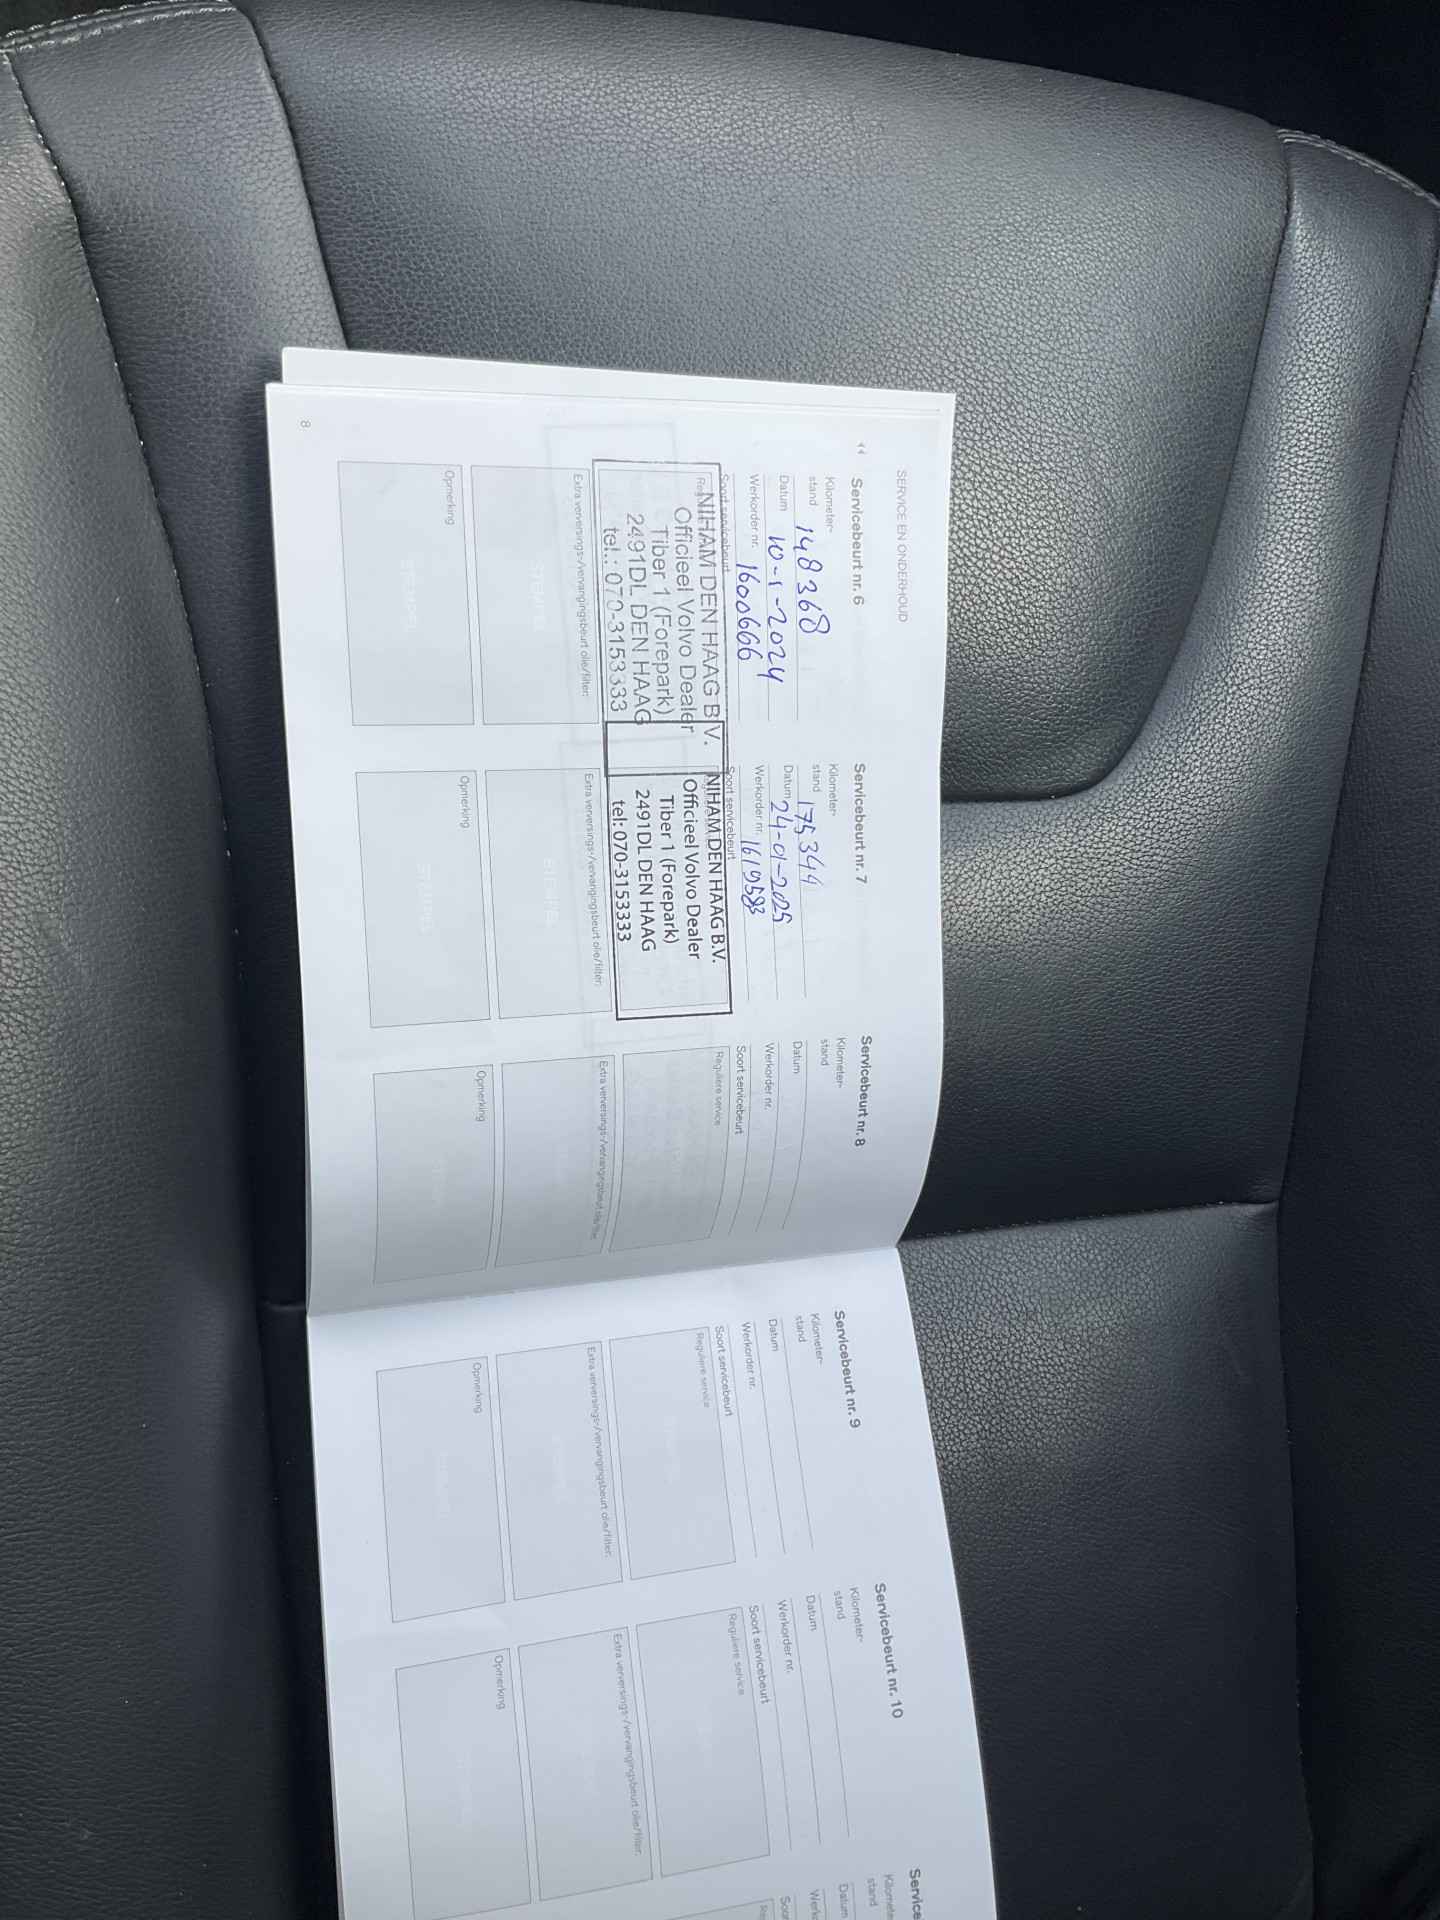 SERVICE EN ONDERHOUD
Servicebeurt nr. 6
Kilometer-
stand 148368
Datum 10-1-2024
Werkorder nr. 1600666
Soort servicebeurt
NIHAM DEN HAAG B.V.
Officieel Volvo Dealer
Tiber 1 (Forepark)
2491DL DEN HAAG
tel.: 070-3153333
Extra verversings-/vervangingsbeurt olie/filter:
STEMPEL
Opmerking
STEMPEL
Servicebeurt nr. 7
Kilometer-
stand 175344
Datum 24-01-2025
Werkorder nr. 1619583
Soort servicebeurt
NIHAM DEN HAAG B.V.
Officieel Volvo Dealer
Tiber 1 (Forepark)
2491DL DEN HAAG
tel: 070-3153333
Extra verversings-/vervangingsbeurt olie/filter:
STEMPEL
Opmerking
STEMPEL
Servicebeurt nr. 8
Kilometer-
stand
Datum
Werkorder nr.
Soort servicebeurt
Reguliere service
Extra verversings-/vervangingsbeurt olie/filter:
Opmerking
8
Servicebeurt nr. 9
Kilometer-
stand
Datum
Werkorder nr.
Soort servicebeurt
Reguliere service
Extra verversings-/vervangingsbeurt olie/filter:
Opmerking
Servicebeurt nr. 10
Kilometer-
stand
Datum
Werkorder nr.
Soort servicebeurt
Reguliere service
Extra verversings-/vervangingsbeurt olie/filter:
Opmerking
Service
Kilomete
stand
Datum
Werkc
Soor